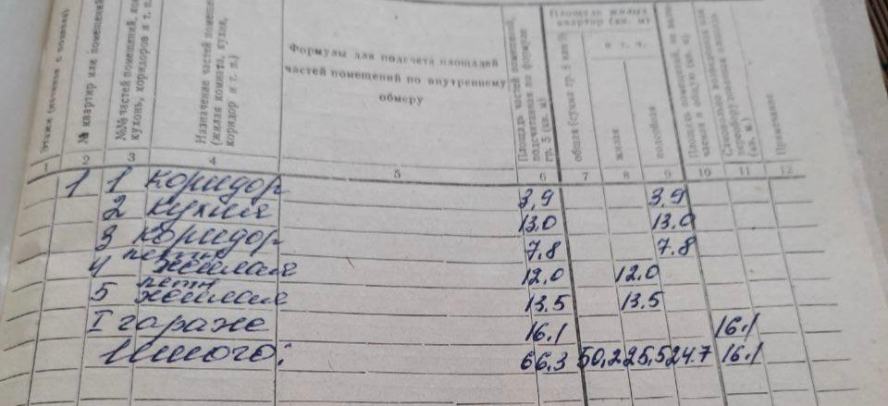 Этажи (начиная с подвала)
№ квартир или помещений
№№ частей помещений, кухонь, коридоров и т. п.
Назначение частей помещений (жилая комната, кухня, коридор и т. п.)
Формулы для подсчета площадей
частей помещений по внутреннему
обмеру
Площадь частей помещений, подсчитанная по формуле гр. 5 (кв. м)
Площадь жилых
квартир (кв. м)
общая (сумма гр. 8
в т. ч.
жилая
подсобная
(кв. м)
Примечание
1 2 3 4 5 6 7 8 9 10 11 12
1 1 коридор 3,9 3.9
2 кухня 13.0 13.0
3 коридор 7.8 7.8
4 летн жилая 12.0 12.0
5 летн жилая 13.5 13.5
I гараж 16.1 16.1
Итого: 66.3 50,2 25,5 24.7 16.1